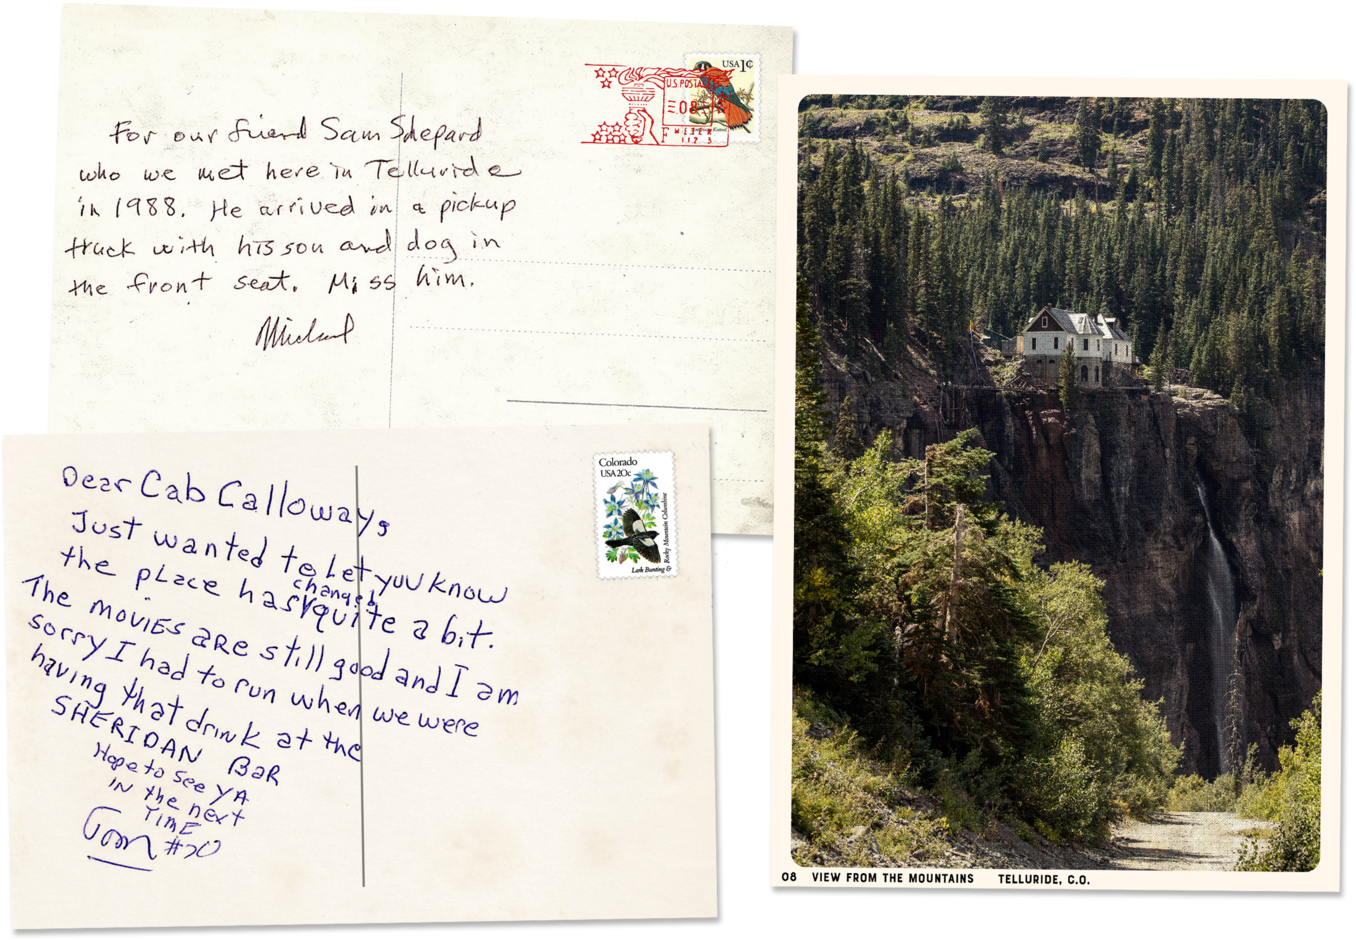 For our friend Sam Shepard
who we met here in Telluride
in 1988. He arrived in a pickup
truck with his son and dog in
the front seat. Miss him.
Michael
USA 1¢
U.S. POSTA
08
Dear Cab Calloway,
Just wanted to let you know
the place has changed quite a bit.
The movies are still good and I am
sorry I had to run when we were
having that drink at the
SHERIDAN BAR
Hope to see YA
in the next
TIME
Tom #20
Colorado
USA 20c
Lark Bunting &
Rocky Mountain Columbine
08 VIEW FROM THE MOUNTAINS TELLURIDE, C.O.